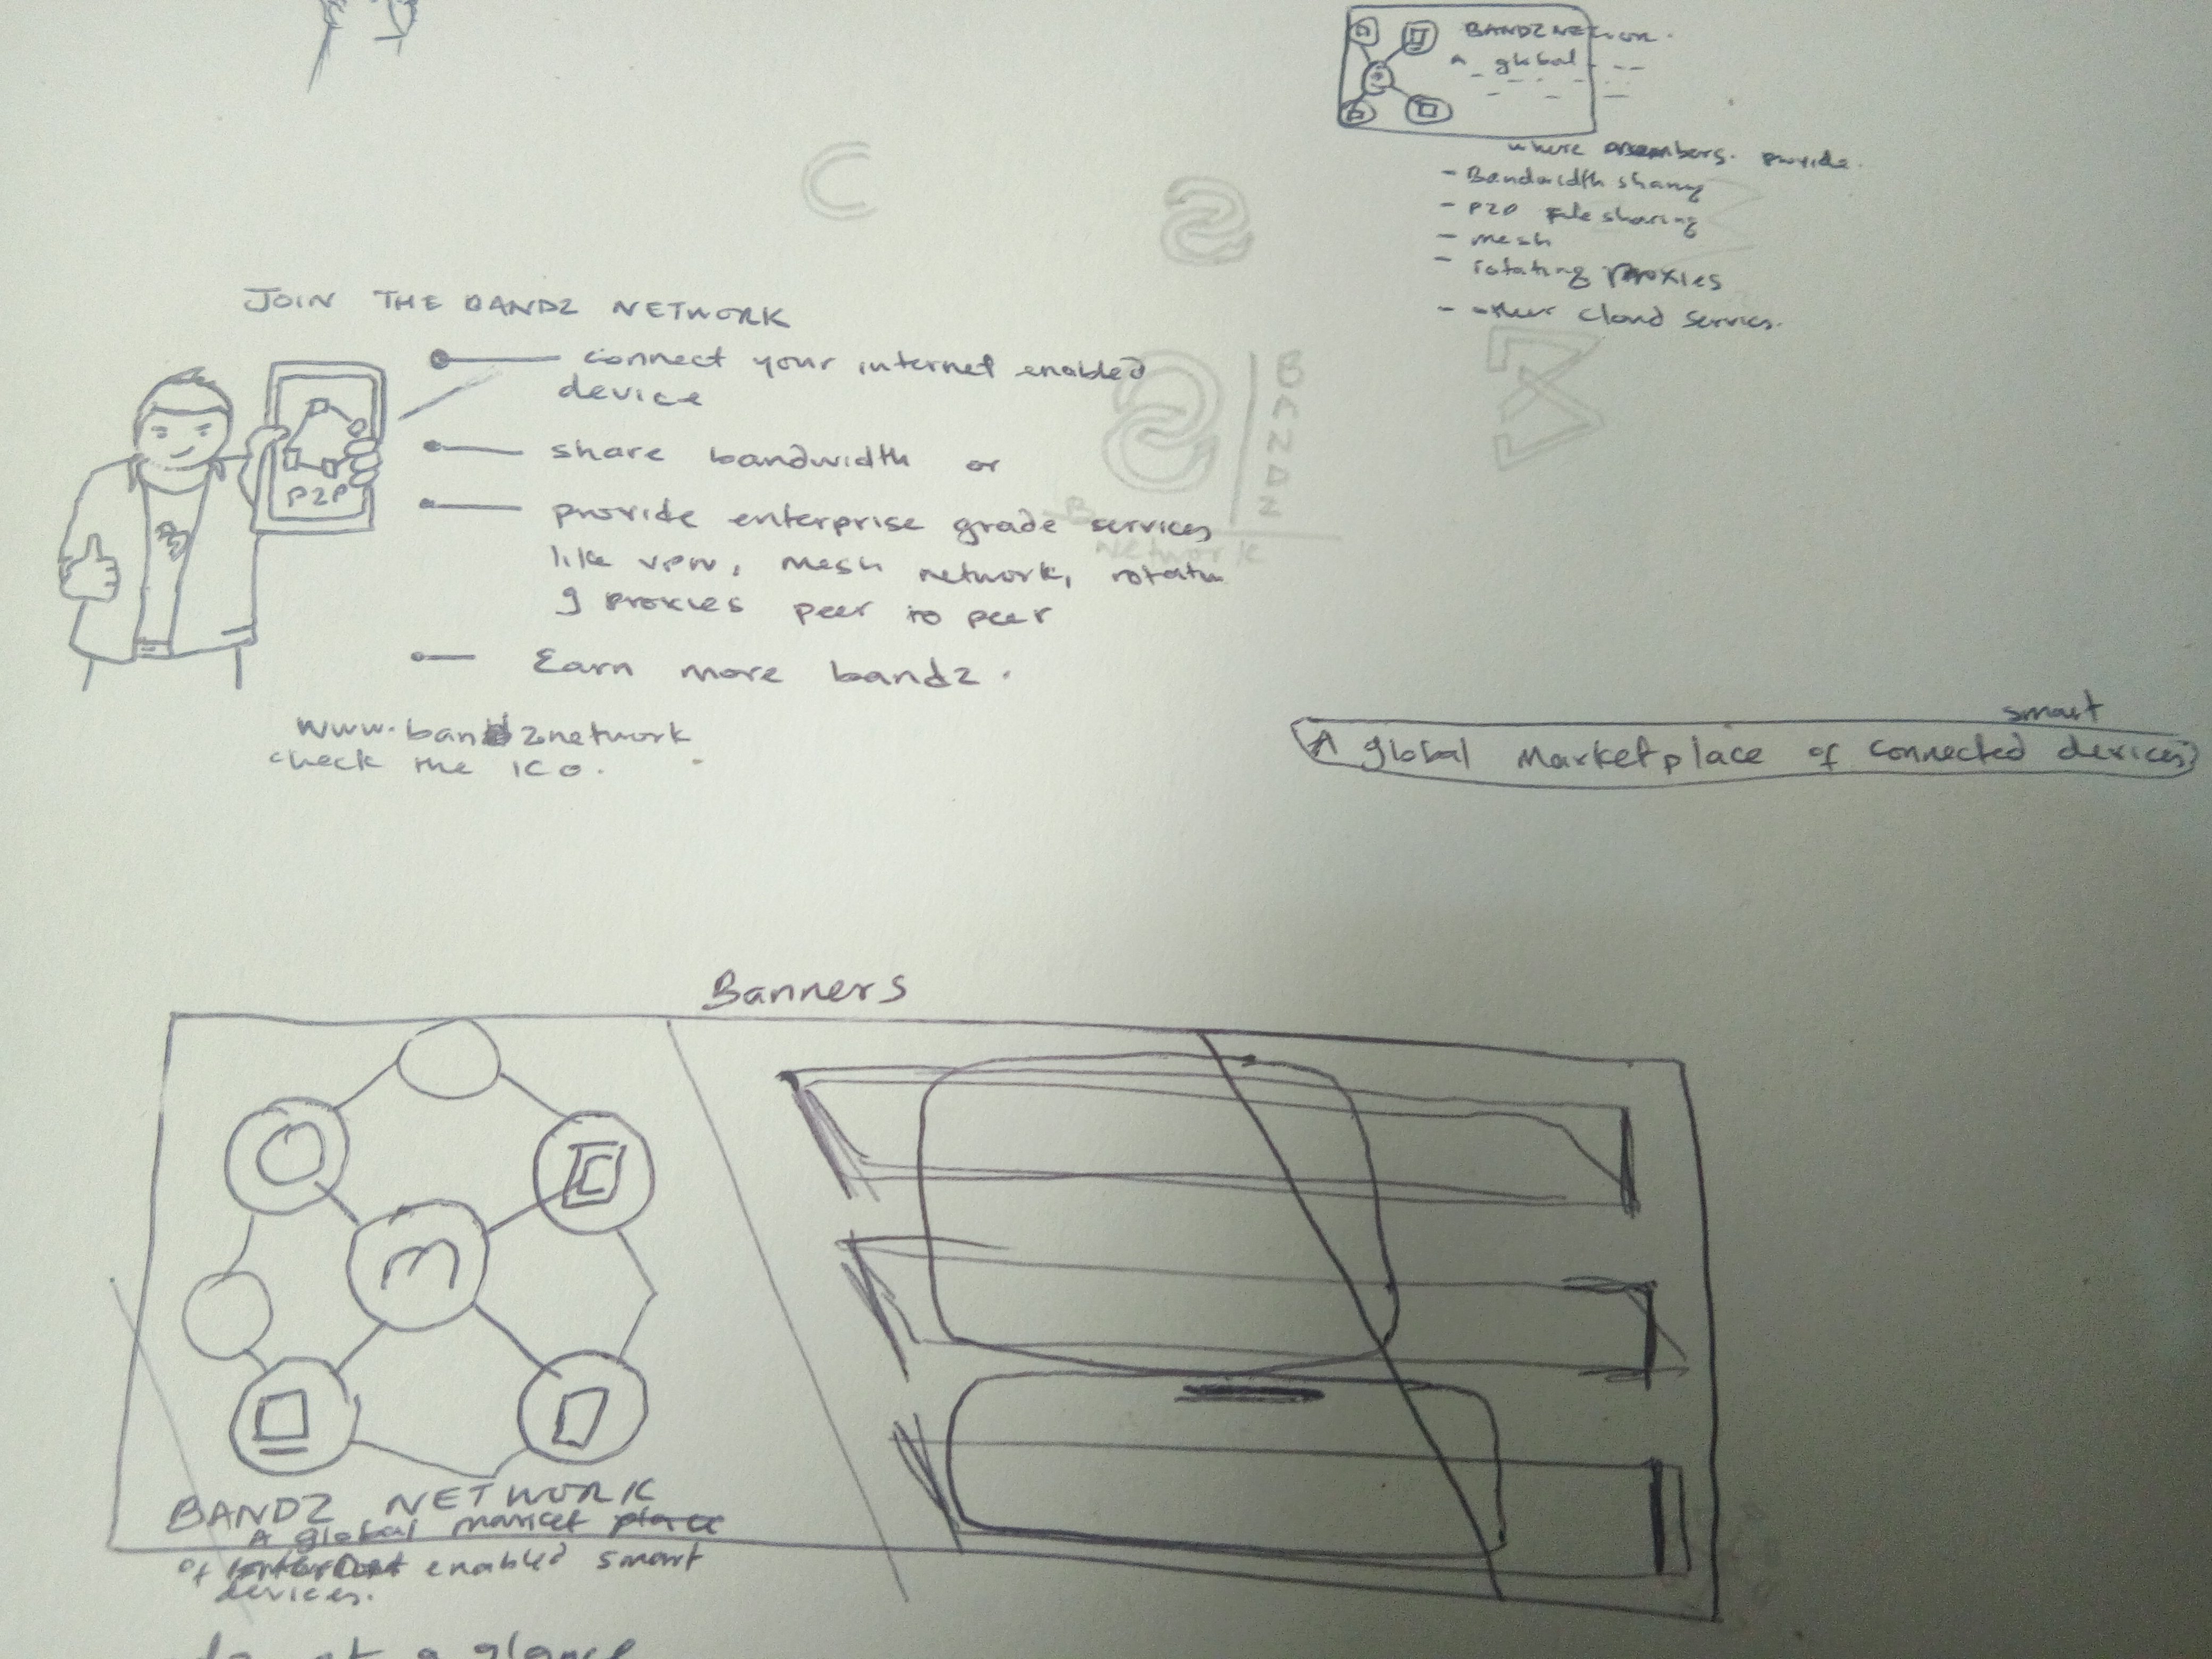 BANDZ NETWORK.
A global
where members. provide.
- Bandwidth sharing
- P2P File sharing
- mesh
- rotating Proxies
- other cloud services.
JOIN THE BANDZ NETWORK
connect your internet enabled
device
share bandwidth or
provide enterprise grade services
like vpn, mesh network, rotatin
g proxies peer to peer
Earn more bandz.
P2P
www.bandznetwork
check the ICO.
B
A
N
D
Z
Network
smart
A global Marketplace of connected devices
Banners
BANDZ NETWORK
A global market place
of internet enabled smart
devices.
at a glance